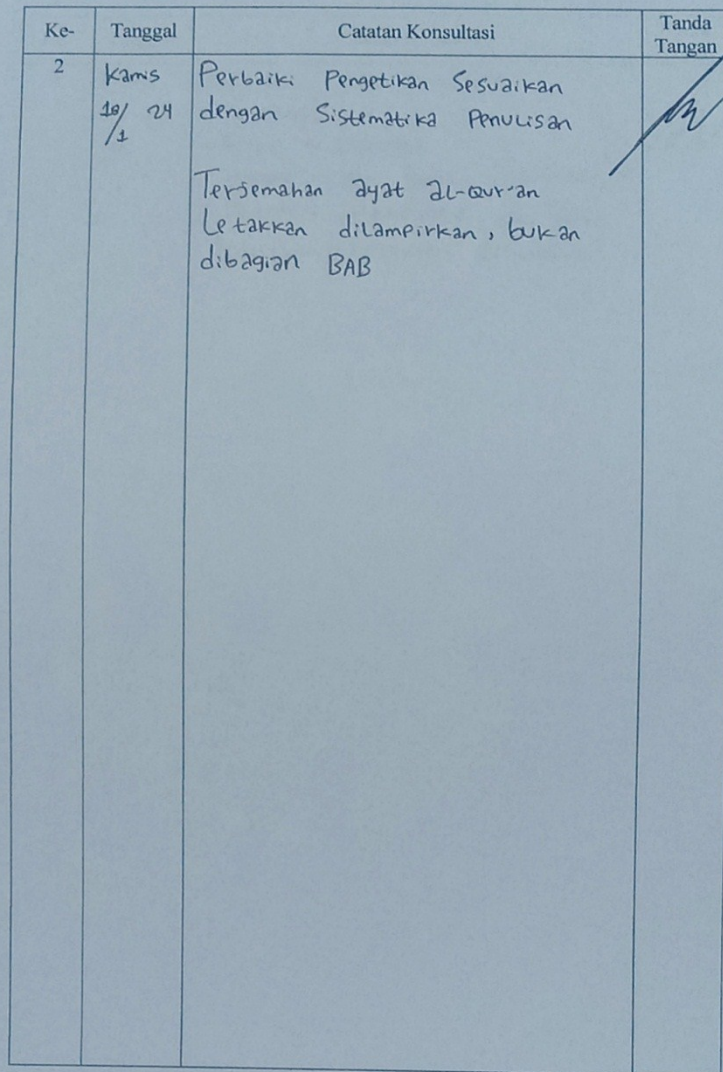 Ke- Tanggal Catatan Konsultasi Tanda Tangan
2 Kamis Perbaiki Pengetikan Sesuaikan
18/1 24 dengan Sistematika Penulisan
Terjemahan ayat al-Qur'an
Letakkan dilampirkan, bukan
dibagian BAB